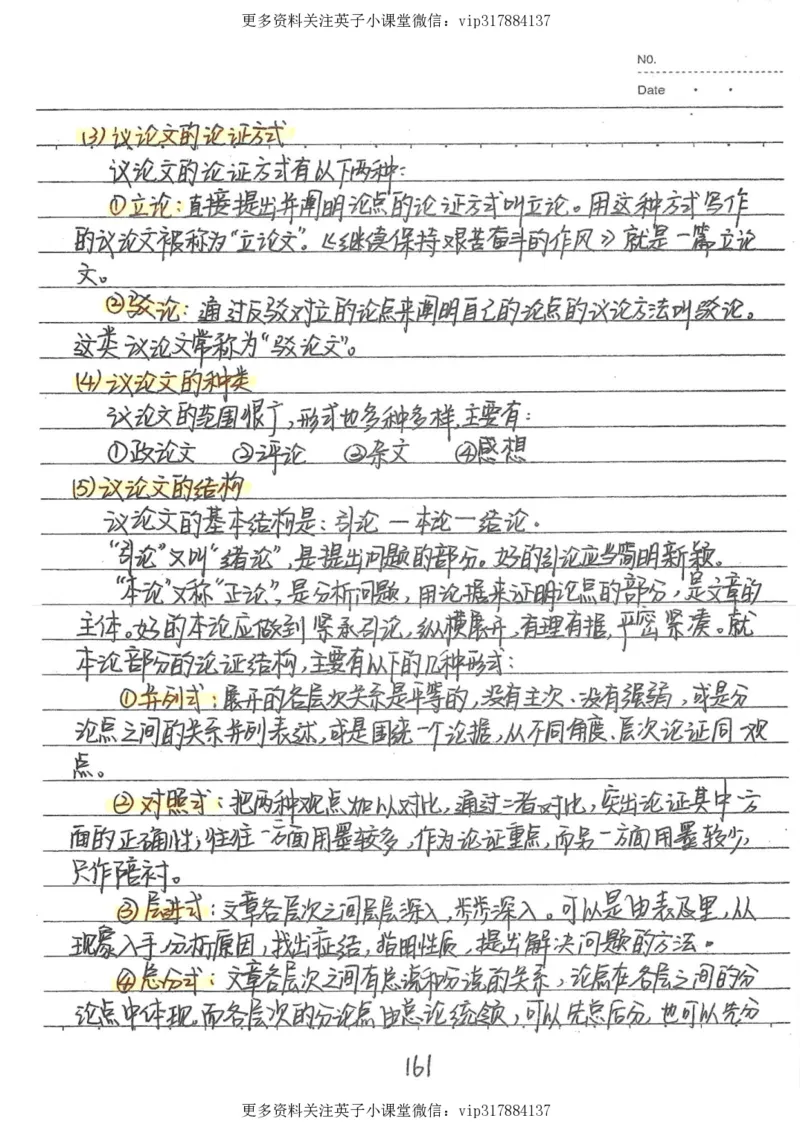 更多资料关注英子小课堂微信：vip317884137
NO.
Date
(3)议论文的论证方式
议论文的论证方式有以下两种：
①立论：直接提出并阐明论点的论证方式叫立论。用这种方式写作
的议论文被称为“立论文”。《继续保持艰苦奋斗的作风》就是一篇立论
文。
②驳论：通过反驳对立的论点来阐明自己的论点的议论方法叫驳论。
这类议论文常称为“驳论文”。
(4)议论文的种类
议论文的范围很广，形式也多种多样，主要有：
①政论文 ②评论 ③杂文 ④感想
(5)议论文的结构
议论文的基本结构是：引论一本论一结论。
“引论”又叫“绪论”，是提出问题的部分。好的引论应当简明新颖。
“本论”又称“正论”，是分析问题，用论据来证明论点的部分，是文章的
主体。好的本论应做到紧承引论，纵横展开，有理有据，严密紧凑。就
本论部分的论证结构，主要有以下的几种形式：
①并列式：展开的各层次关系是平等的，没有主次、没有强弱，或是分
论点之间的关系并列表述，或是围绕一个论据，从不同角度、层次论证同一观
点。
②对照式：把两种观点加以对比，通过二者对比，突出论证其中一方
面的正确性，往往一方面用墨较多，作为论证重点，而另一方面用墨较少，
只作陪衬。
③层进式：文章各层次之间层层深入，步步深入。可以是由表及里，从
现象入手，分析原因，找出症结，指明性质，提出解决问题的方法。
④总分式：文章各层次之间有总说和分说的关系，论点在各层之间的分
论点中体现，而各层次的分论点由总论统领，可以先总后分，也可以先分
161
更多资料关注英子小课堂微信：vip317884137